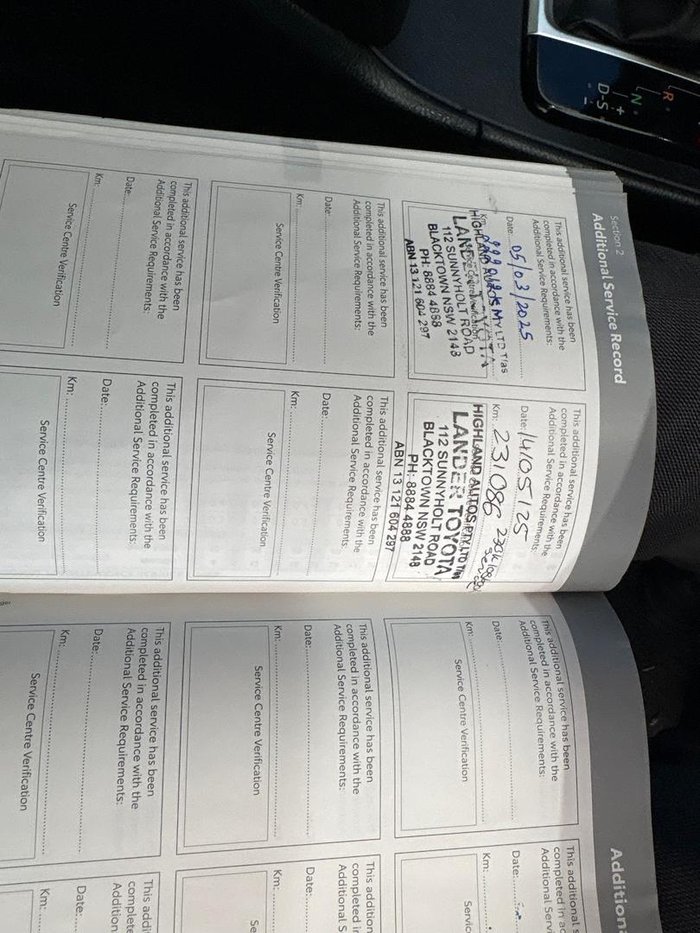 R
N
+
D-S
-
Section 2
Additional Service Record
This additional service has been
completed in accordance with the
Additional Service Requirements:
Date: 05/03/2025
Km:
HIGHLAND AUTOS PTY LTD T/as
LANDER TOYOTA
112 SUNNYHOLT ROAD
BLACKTOWN NSW 2148
PH: 8884 4888
ABN 13 121 604 297
This additional service has been
completed in accordance with the
Additional Service Requirements:
Date: 14/05/25
Km: 231086
HIGHLAND AUTOS PTY LTD T/as
LANDER TOYOTA
112 SUNNYHOLT ROAD
BLACKTOWN NSW 2148
PH: 8884 4888
ABN 13 121 604 297
This additional service has been
completed in accordance with the
Additional Service Requirements:
Date:
Km:
Service Centre Verification
This additional service has been
completed in accordance with the
Additional Service Requirements:
Date:
Km:
Service Centre Verification
This additional service has been
completed in accordance with the
Additional Service Requirements:
Date:
Km:
Service Centre Verification
This additional service has been
completed in accordance with the
Additional Service Requirements:
Date:
Km:
Service Centre Verification
Addition
This additional service has been
completed in accordance with the
Additional Service Requirements:
Date:
Km:
Service Centre Verification
This additional s
completed in ac
Additional Serv
Date:
Km:
Servic
This additional service has been
completed in accordance with the
Additional Service Requirements:
Date:
Km:
Service Centre Verification
This addition
completed in
Additional S
Date:
Km:
Se
This additional service has been
completed in accordance with the
Additional Service Requirements:
Date:
Km:
Service Centre Verification
This addi
complete
Addition
Date:
Km: